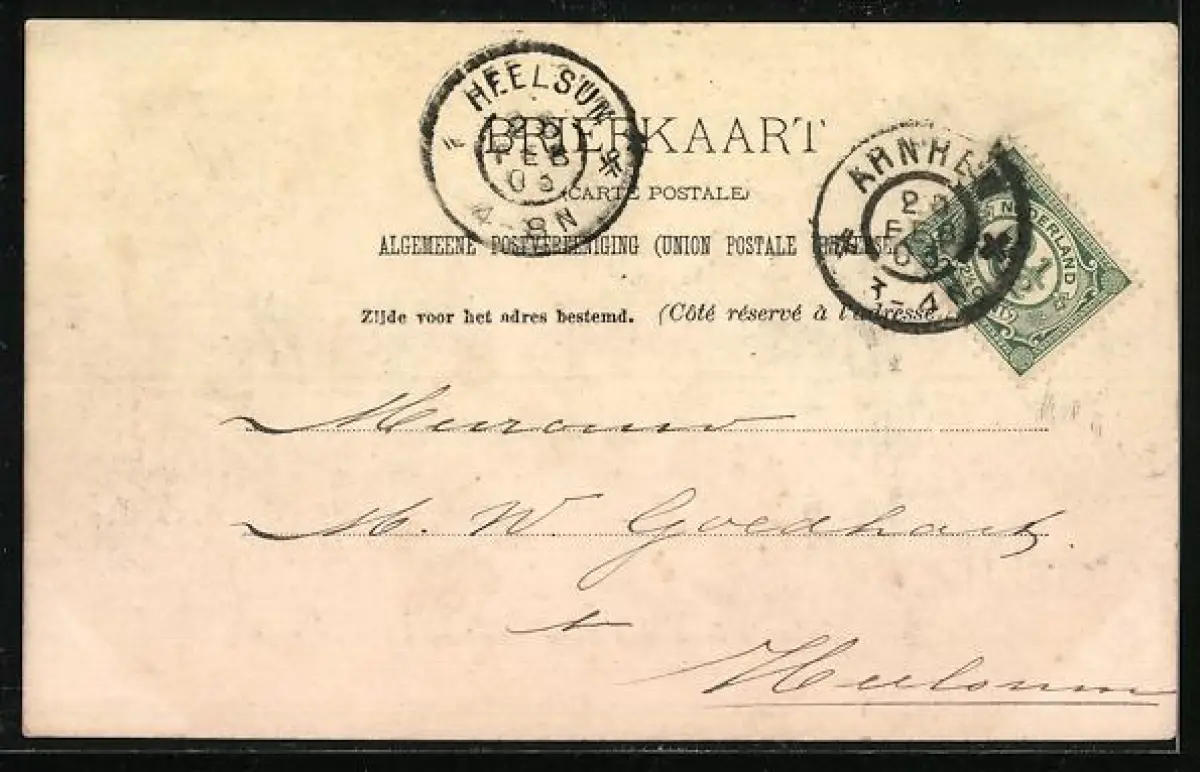 HEELSUM
FEB
03
4-8N
BRIEFKAART
(CARTE POSTALE)
ALGEMEENE POSTVEREENIGING (UNION POSTALE UNIVERSELLE)
Zijde voor het adres bestemd. (Côté réservé à l'adresse.)
ARNHEM
FEB
03
3-4
NEDERLAND
Mevrouw
M. W. Goedhart
te
Heelsum